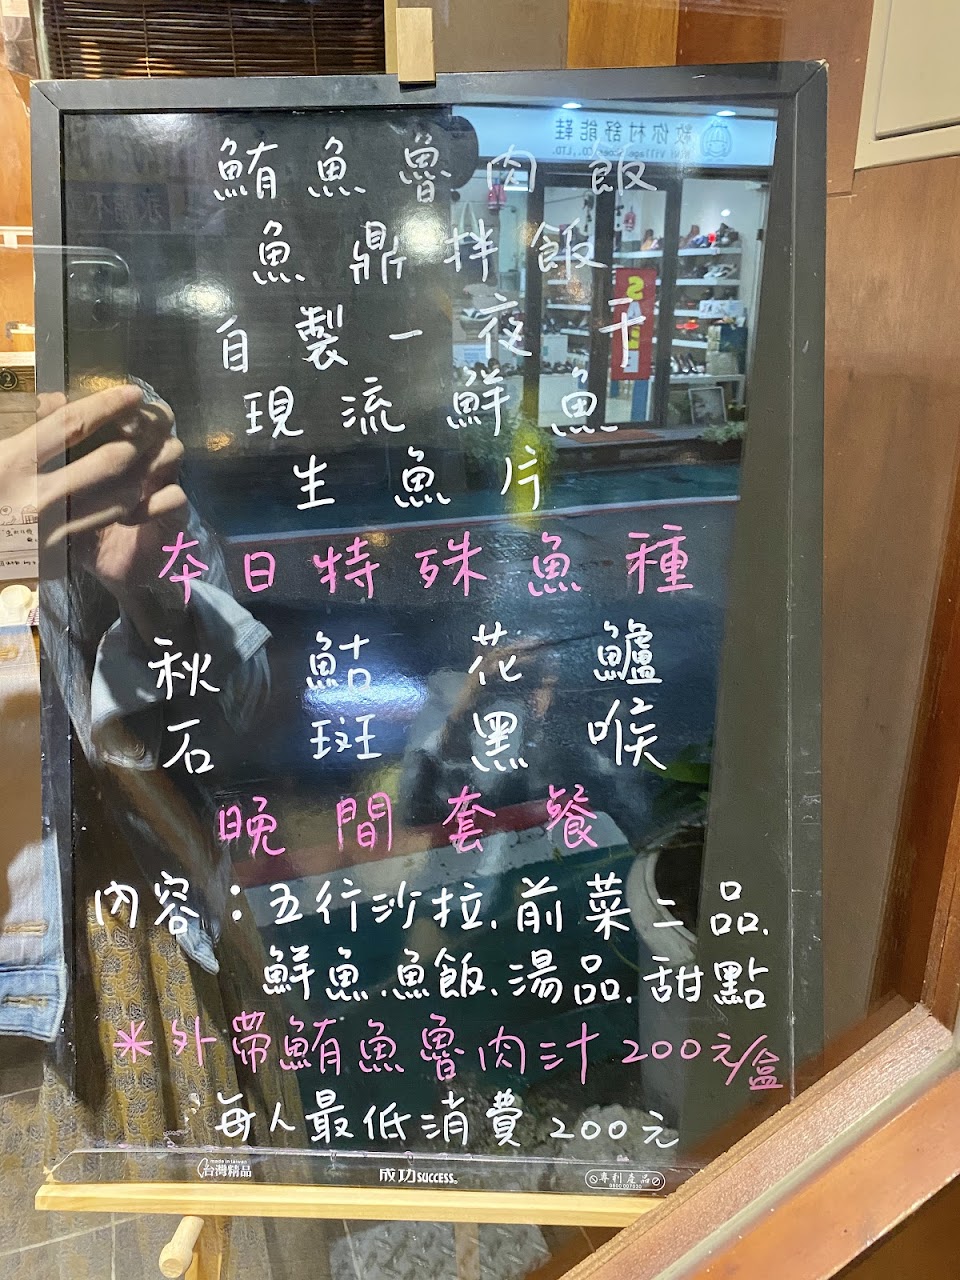 鮪魚魯肉飯
魚鼎拌飯
自製一夜干
現流鮮魚
生魚片
本日特殊魚種
秋鮕花鱸
石斑黑喉
晚間套餐
內容：五行沙拉、前菜二品、
鮮魚、魚飯、湯品、甜點
*外帶鮪魚魯肉汁200元/盒
每人最低消費200元
made in taiwan
台灣精品
成功SUCCESS
專利產品